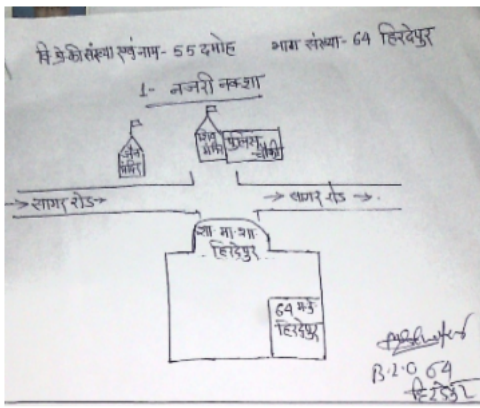 वि.प्रे.की संख्या एवं नाम - 55 दमोह भाग संख्या - 64 हिरदेपुर
1- नजरी नक्शा
जैन मंदिर
शिव मंदिर
पुलिस चौकी
सागर रोड
सागर रोड
शा. मा. शा.
हिरदेपुर
64 म.के.
हिरदेपुर
B.L.O 64
हिरदेपुर